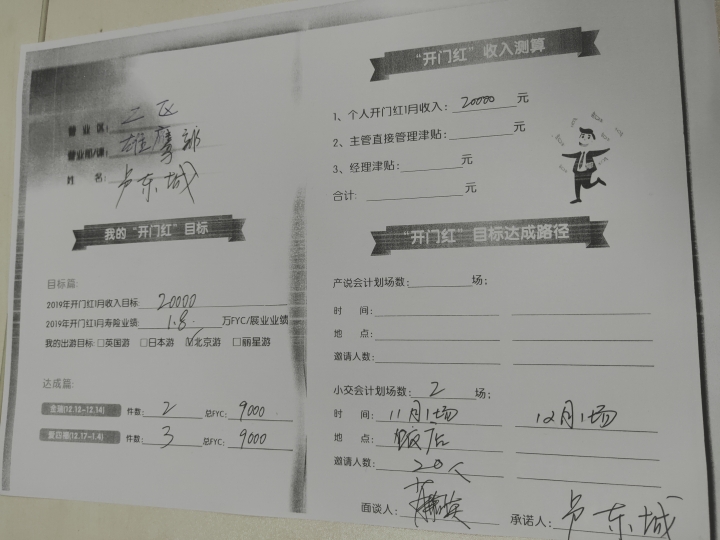 营业区：二区
营业部/课：雄鹰部
姓名：卢东城
我的“开门红”目标
目标篇：
2019年开门红1月收入目标 20000
2019年开门红1月寿险业绩 1.8 万FYC/展业业绩
我的出游目标：□英国游 □日本游 ☑北京游 □丽星游
达成篇：
(12.12-12.14) 件数：2 总FYC：9000
(12.17-1.4) 件数：3 总FYC：9000
“开门红”收入测算
1、个人开门红1月收入：20000元
2、主管直接管理津贴：元
3、经理津贴：元
合计：元
“开门红”目标达成路径
产说会计划场数：场；
时间：
地点：
邀请人数：
小交会计划场数：2场；
时间：11月1场 12月1场
地点：饭店
邀请人数：20人
面谈人：
承诺人：卢东城